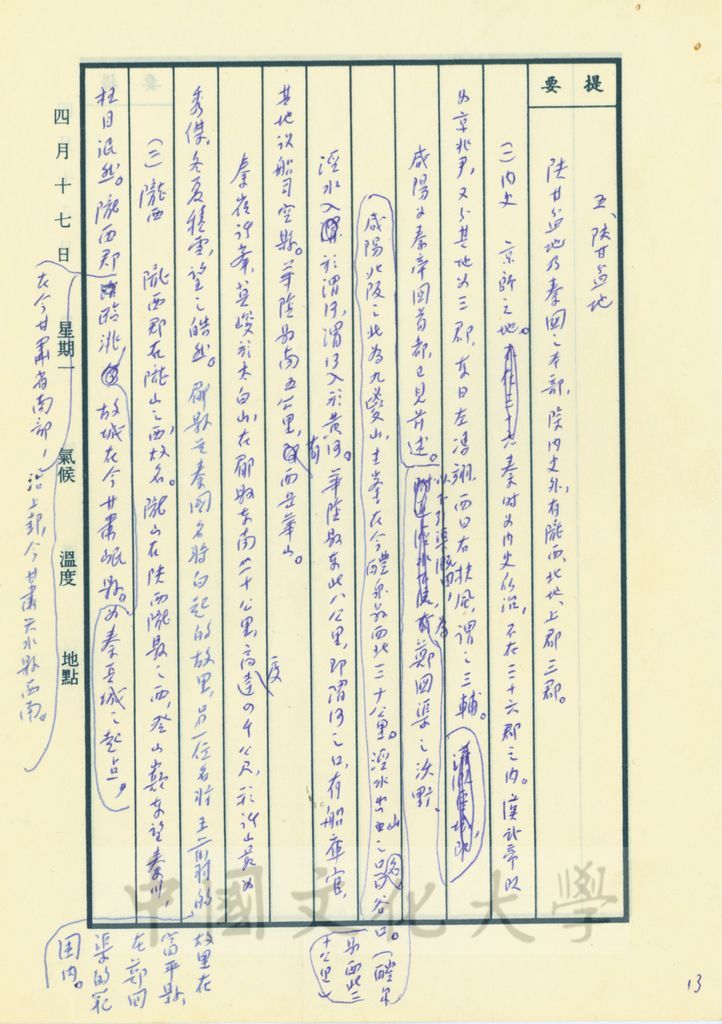 提要
五、陝甘盆地
陝甘盆地乃秦國之本部，除內史外，有隴西、北地、上郡三郡。
(一)內史　京師之地。秦時為內史所治，不在三十六郡之內。漢武帝改
為京兆尹，又分其地為三郡，東曰左馮翊，西曰右扶風，謂之三輔。
咸陽為秦帝國首都，已見前述。鄭國渠之沃野。
咸陽北阪之北為九嵏山，主峯在今醴泉縣西北三十公里。涇水出山之口名谷口。(醴泉縣西北三十公里)
涇水入於渭河，渭河入於黃河。華陰縣東北八公里，即渭河之口，有船庫官，
其地設船司空縣。華陰縣南五公里，有西岳華山。
秦嶺諸峯，莫峻於太白山，在郿縣東南二十公里，高達四千公尺，於諸山最為
秀傑，冬夏積雪，望之皓然。郿縣是秦國名將白起的故里，另一位名將王翦的故里在富平縣，在鄭國渠的範圍內。
(二)隴西　隴西郡在隴山之西，故名。隴山在陝西隴縣之西，登山巔東望秦川，
極目泯然。隴西郡治臨洮，故城在今甘肅岷縣。為秦長城之起点。
在今甘肅省南部，治上邽，今甘肅天水縣西南。
四月十七日　星期一　氣候　溫度　地點
中國文化大學
13